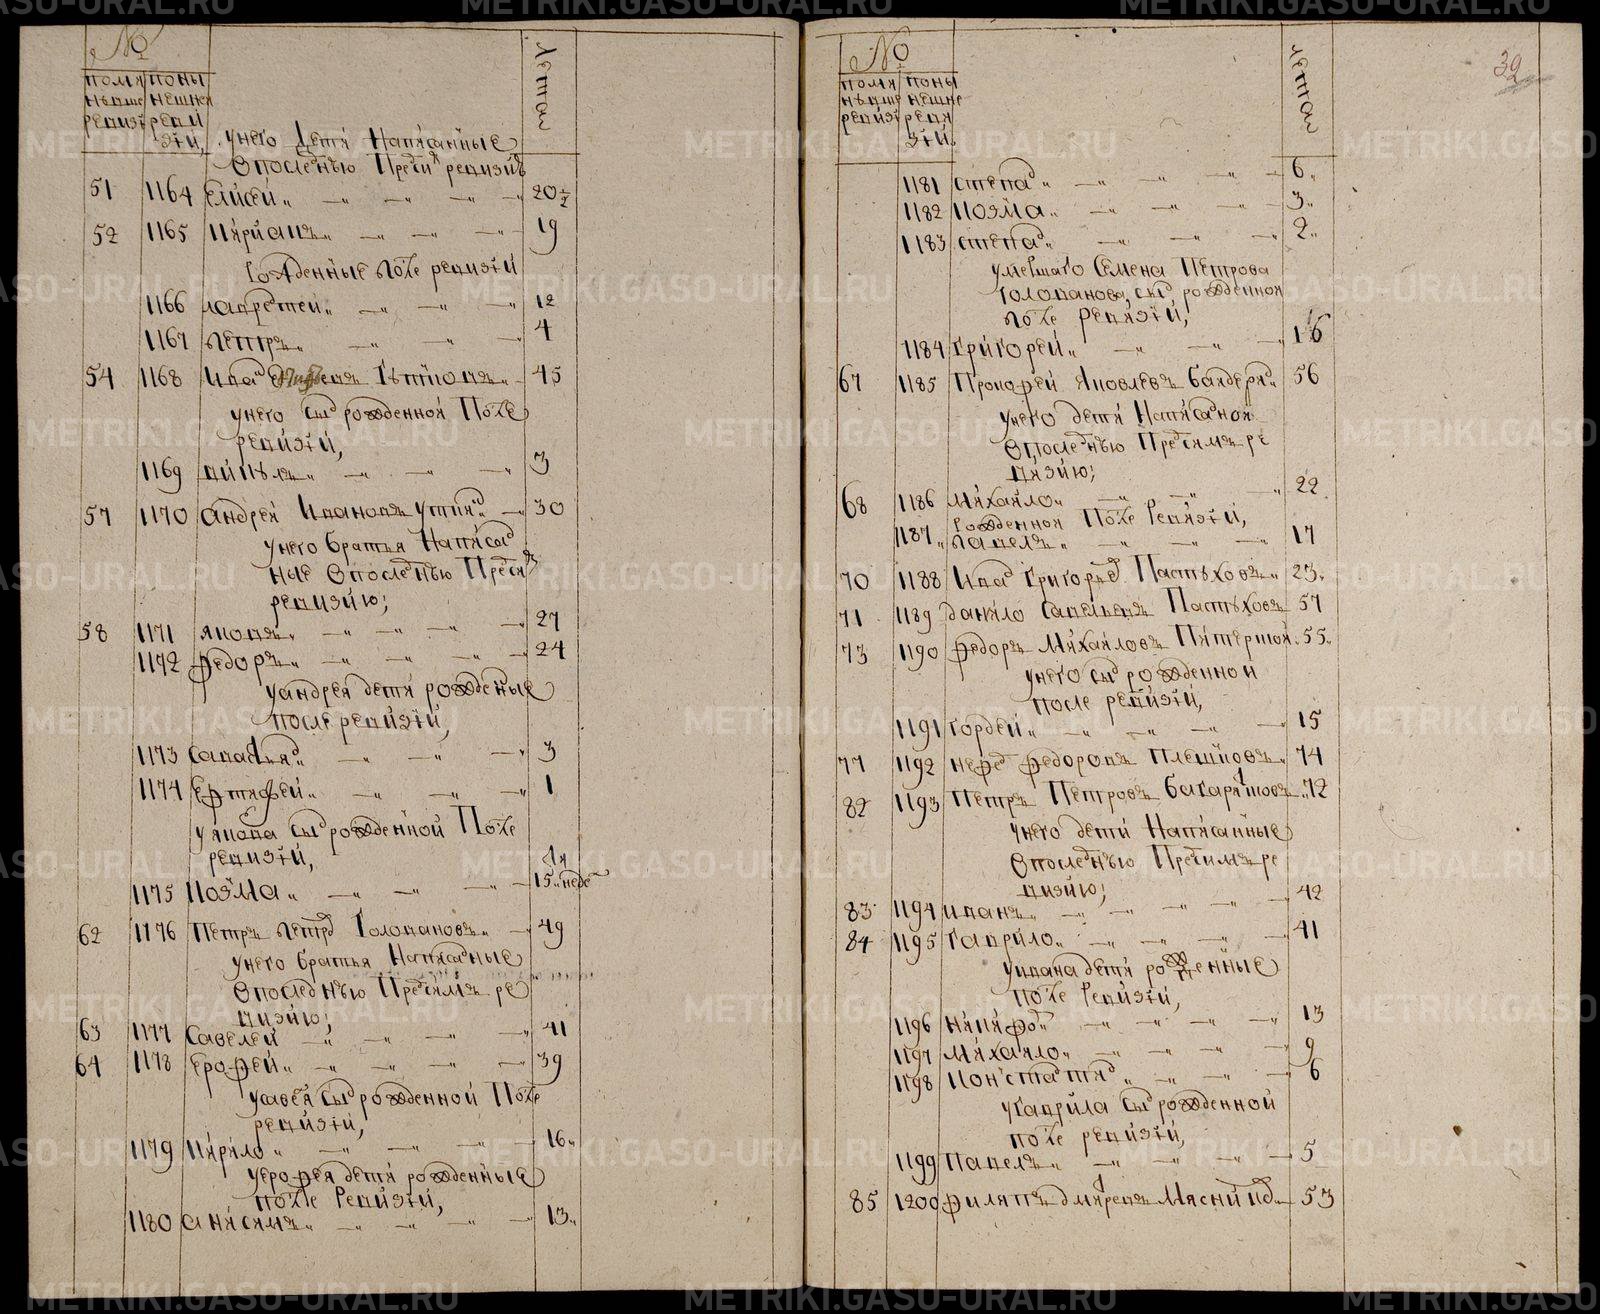 №
лѣта
у него дети написанные
в последнью пред сим ревизию
51 1164 елисей 20½
52 1165 кирианъ 19
рожденные после ревизии
1166 лаврентей 12
1167 петръ 4
54 1168 иван 45
у него сын рожденной после
ревизии,
1169 3
57 1170 андрей ивановъ 30
у него братья написан
ные в последнью пред сим
ревизию;
58 1171 яковъ 27
1172 федоръ 24
у андрея дети рожденые
после ревизии,
1173 савастьян 3
1174 1
у якова сын рожденной после
ревизии,
1175 козма 15 неде
62 1176 петръ петров голованов 49
у него братья написаные
в последнью пред симъ ре
визию;
63 1177 савелей 41
64 1178 ерофей 39
у савелья сын рожденной после
ревизии,
1179 кирило 16
у ерофея дети рожденные
после ревизии,
1180 анисимъ 13
№
лѣта
39
1181 степан 6
1182 козма 3
1183 степан 2
умершаго семена петрова
голованова, сын рожденной
после ревизии,
1184 григорей 16
67 1185 прокофей яковлевъ 56
у него дети написаной
в последнью пред симъ ре
визию;
68 1186 михайло 22
рожденной после ревизии,
1187 павелъ 17
70 1188 иван григорьев пастуховъ 23
71 1189 данило савельевъ пастуховъ 57
73 1190 федоръ михайловъ 55
у него сын рожденной
после ревизии,
1191 гордей 15
77 1192 нефед федоровъ плешковъ 74
82 1193 петръ петровъ 72
у него дети написанные
в последнью пред симъ ре
визию;
83 1194 иванъ 42
84 1195 гаврило 41
у ивана дети рожденные
после ревизии,
1196 никифор 13
1197 михайло 9
1198 констатин 6
у гаврила сын рожденной
после ревизии,
1199 павелъ 5
85 1200 филипъ 53
METRIKI.GASO-URAL.RU